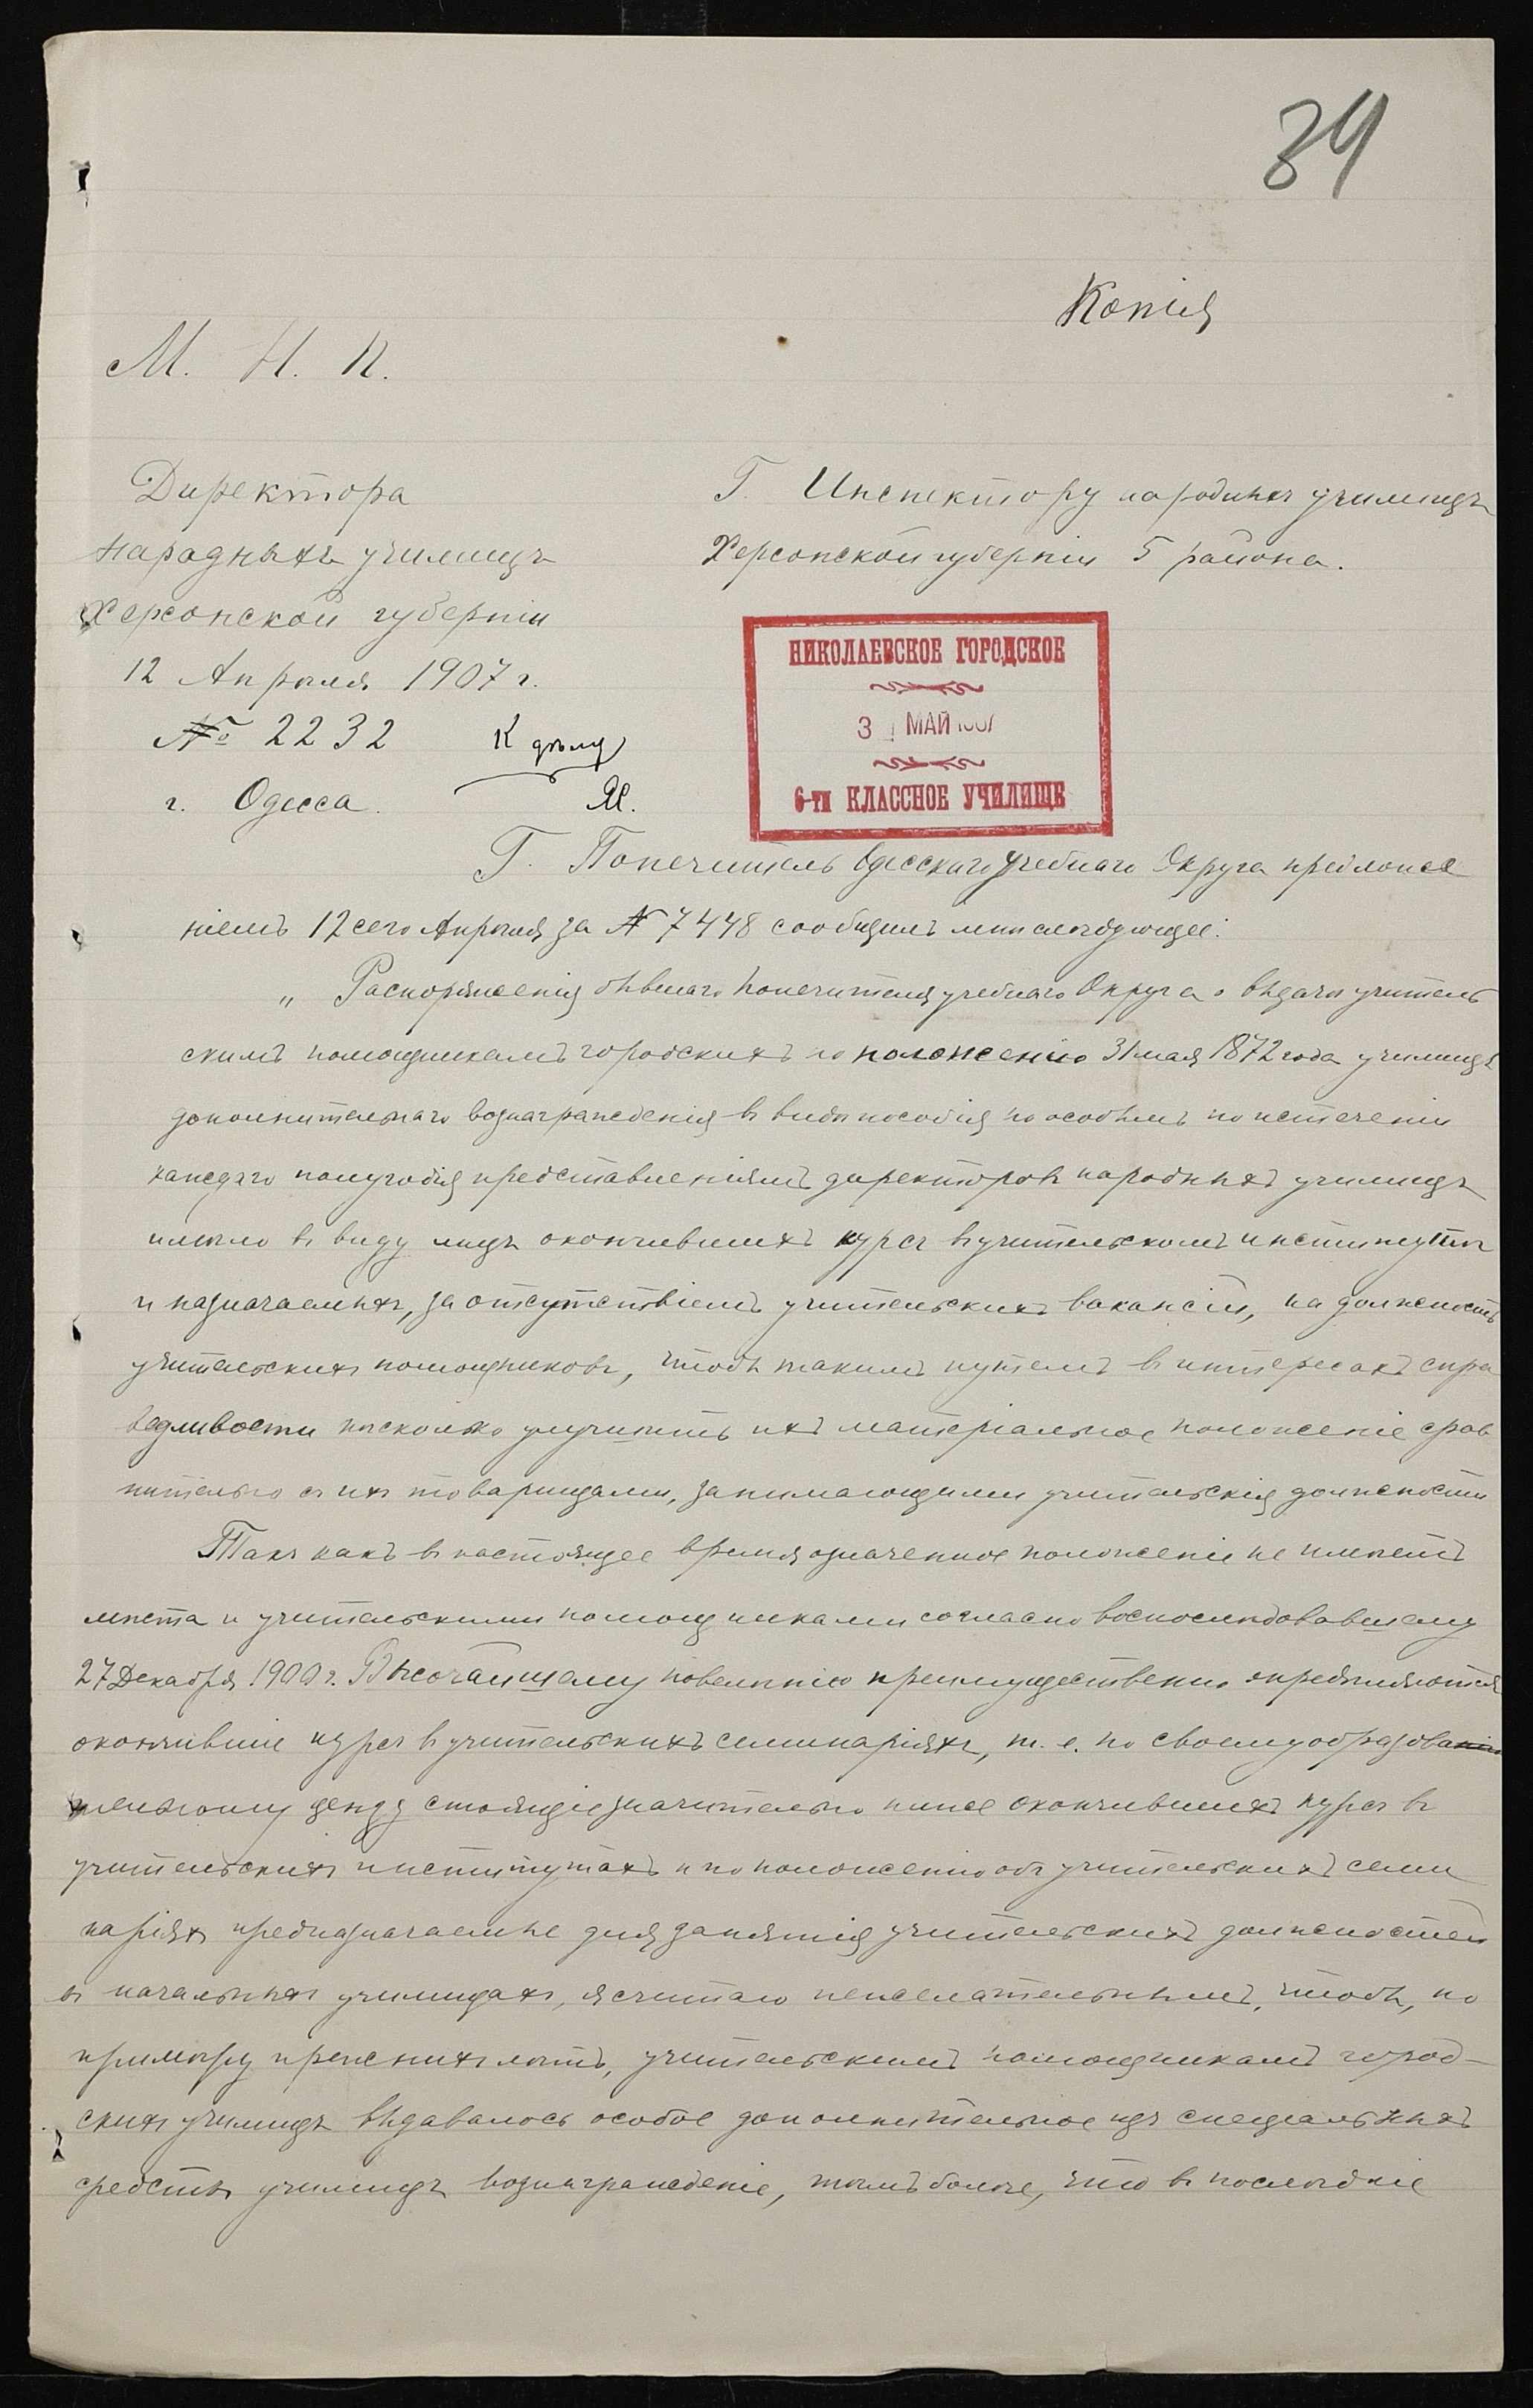 34
Копія
М. Н. П.
Директора
народныхъ училищъ
Херсонской губерніи
12 Апрѣля 1907 г.
№ 2232
К дѣлу
г. Одесса.
Г. Инспектору народныхъ училищъ
Херсонской губерніи 5 района.
НИКОЛАЕВСКОЕ ГОРОДСКОЕ
3 МАЙ 1907
6-ТИ КЛАССНОЕ УЧИЛИЩЕ
Г. Попечитель Одесскаго Учебнаго Округа предложе
ніемъ 12 сего Апрѣля за № 7448 сообщилъ мнѣ слѣдующее:
„Распоряженія бывшаго Попечителя учебнаго Округа о выдачѣ учитель
скимъ помощникамъ городскихъ по положенію 31 мая 1872 года училищъ
дополнительнаго вознагражденія въ видѣ пособія по особымъ по истеченіи
каждаго полугодія представленіямъ директоровъ народныхъ училищъ
имѣло въ виду лицъ окончившихъ курсъ въ учительскомъ институтѣ
и назначаемыхъ, за отсутствіемъ учительскихъ вакансій, на должность
учительскихъ помощниковъ, чтобы такимъ путемъ въ интересахъ спра
ведливости нѣсколько улучшить ихъ матеріальное положеніе срав
нительно съ ихъ товарищами, занимающими учительскія должности
Такъ какъ въ настоящее время означенное положеніе не имѣетъ
мѣста и учительскими помощниками согласно воспослѣдовавшему
27 Декабря 1900 г. Высочайшему повелѣнію преимущественно опредѣляются
окончившіе курсъ въ учительскихъ семинаріяхъ, т. е. по своему образова
тельному цензу стоящіе значительно ниже окончившихъ курсъ въ
учительскихъ институтахъ и по положенію объ учительскихъ семи
наріяхъ предназначаемые для занятія учительскихъ должностей
въ начальныхъ училищахъ, я считаю нежелательнымъ, чтобы, по
примѣру прежнихъ лѣтъ, учительскимъ помощникамъ город-
скихъ училищъ выдавалось особое дополнительное изъ спеціальныхъ
средствъ училищъ вознагражденіе, тѣмъ болѣе, что въ послѣдніе